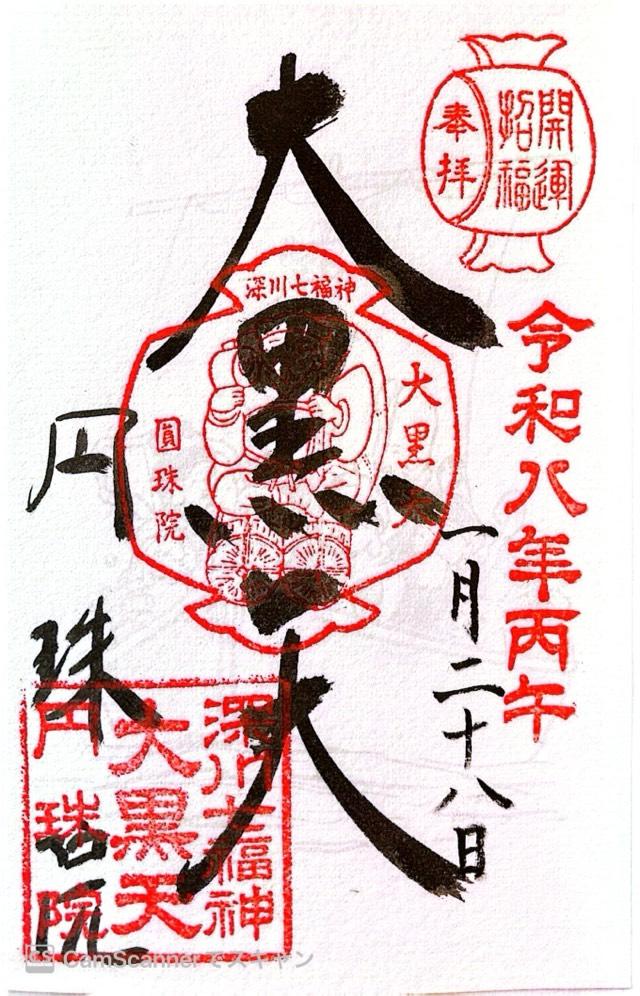 開運
招福
奉拝
令和八年丙午
一月二十八日
大黒天
深川七福神
大黒天
圓珠院
円珠院
深川七福神
大黒天
円珠院
CamScannerでスキャン